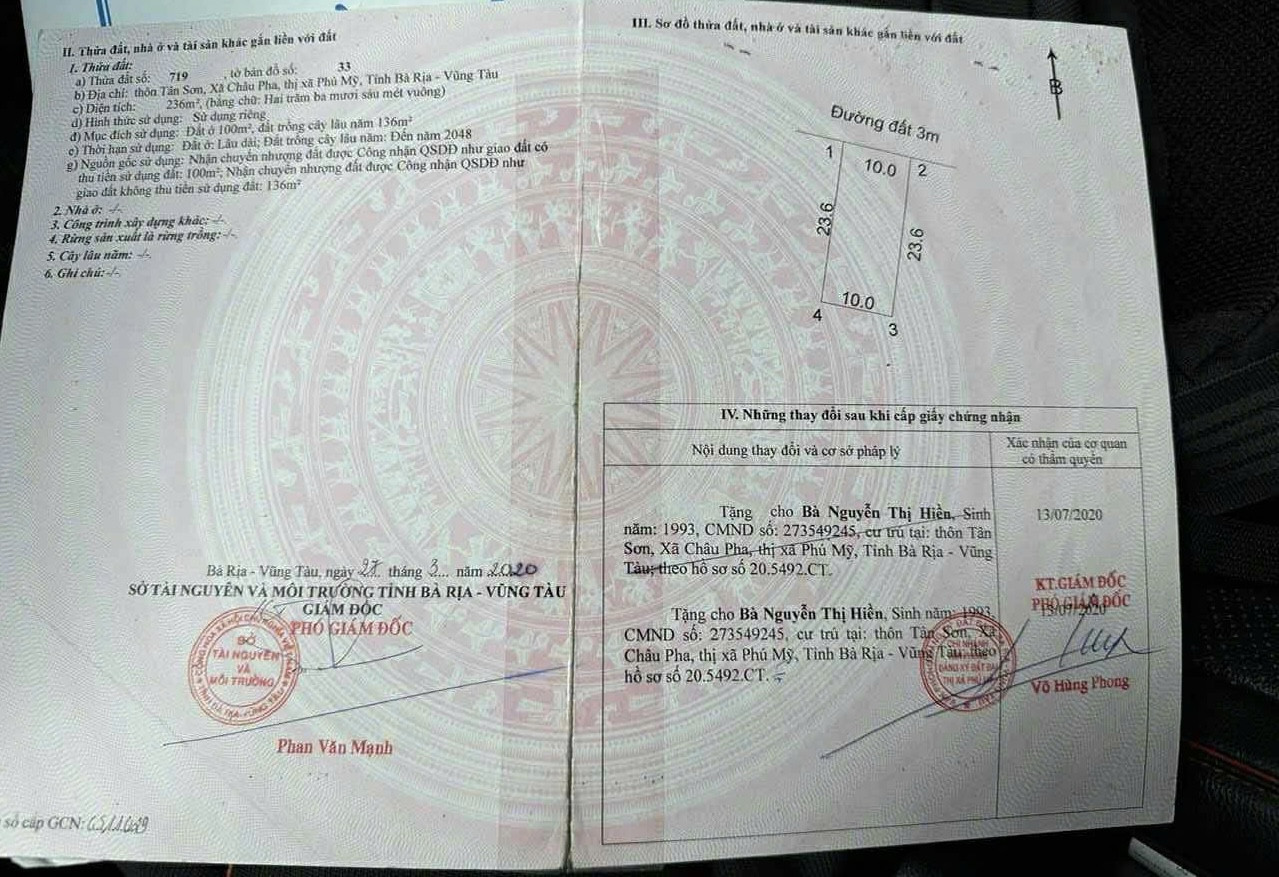 II. Thửa đất, nhà ở và tài sản khác gắn liền với đất
1. Thửa đất:
a) Thửa đất số: 719 , tờ bản đồ số: 33
b) Địa chỉ: thôn Tân Sơn, Xã Châu Pha, thị xã Phú Mỹ, Tỉnh Bà Rịa - Vũng Tàu
c) Diện tích: 236m², (bằng chữ: Hai trăm ba mươi sáu mét vuông)
d) Hình thức sử dụng: Sử dụng riêng
đ) Mục đích sử dụng: Đất ở 100m², đất trồng cây lâu năm 136m²
e) Thời hạn sử dụng: Đất ở: Lâu dài; Đất trồng cây lâu năm: Đến năm 2048
g) Nguồn gốc sử dụng: Nhận chuyển nhượng đất được Công nhận QSDĐ như giao đất có
thu tiền sử dụng đất: 100m²; Nhận chuyển nhượng đất được Công nhận QSDĐ như
giao đất không thu tiền sử dụng đất: 136m²
2. Nhà ở: -/-
3. Công trình xây dựng khác: -/-
4. Rừng sản xuất là rừng trồng: -/-
5. Cây lâu năm: -/-
6. Ghi chú: -/-
Bà Rịa - Vũng Tàu, ngày 27 tháng 3... năm 2020
SỞ TÀI NGUYÊN VÀ MÔI TRƯỜNG TỈNH BÀ RỊA - VŨNG TÀU
GIÁM ĐỐC
PHÓ GIÁM ĐỐC
SỞ
TÀI NGUYÊN
VÀ
MÔI TRƯỜNG
Phan Văn Mạnh
số cấp GCN:
III. Sơ đồ thửa đất, nhà ở và tài sản khác gắn liền với đất
B
Đường đất 3m
1
10.0
2
23.6
23.6
10.0
4
3
IV. Những thay đổi sau khi cấp giấy chứng nhận
Nội dung thay đổi và cơ sở pháp lý
Xác nhận của cơ quan
có thẩm quyền
Tặng cho Bà Nguyễn Thị Hiền, Sinh
năm: 1993, CMND số: 273549245, cư trú tại: thôn Tân
Sơn, Xã Châu Pha, thị xã Phú Mỹ, Tỉnh Bà Rịa - Vũng
Tàu; theo hồ sơ số 20.5492.CT.
13/07/2020
Tặng cho Bà Nguyễn Thị Hiền, Sinh năm: 1993,
CMND số: 273549245, cư trú tại: thôn Tân Sơn, Xã
Châu Pha, thị xã Phú Mỹ, Tỉnh Bà Rịa - Vũng Tàu; theo
hồ sơ số 20.5492.CT.
KT.GIÁM ĐỐC
PHÓ GIÁM ĐỐC
CHI NHÁNH
ĐĂNG KÝ ĐẤT ĐAI
THỊ XÃ PHÚ MỸ
Võ Hùng Phong